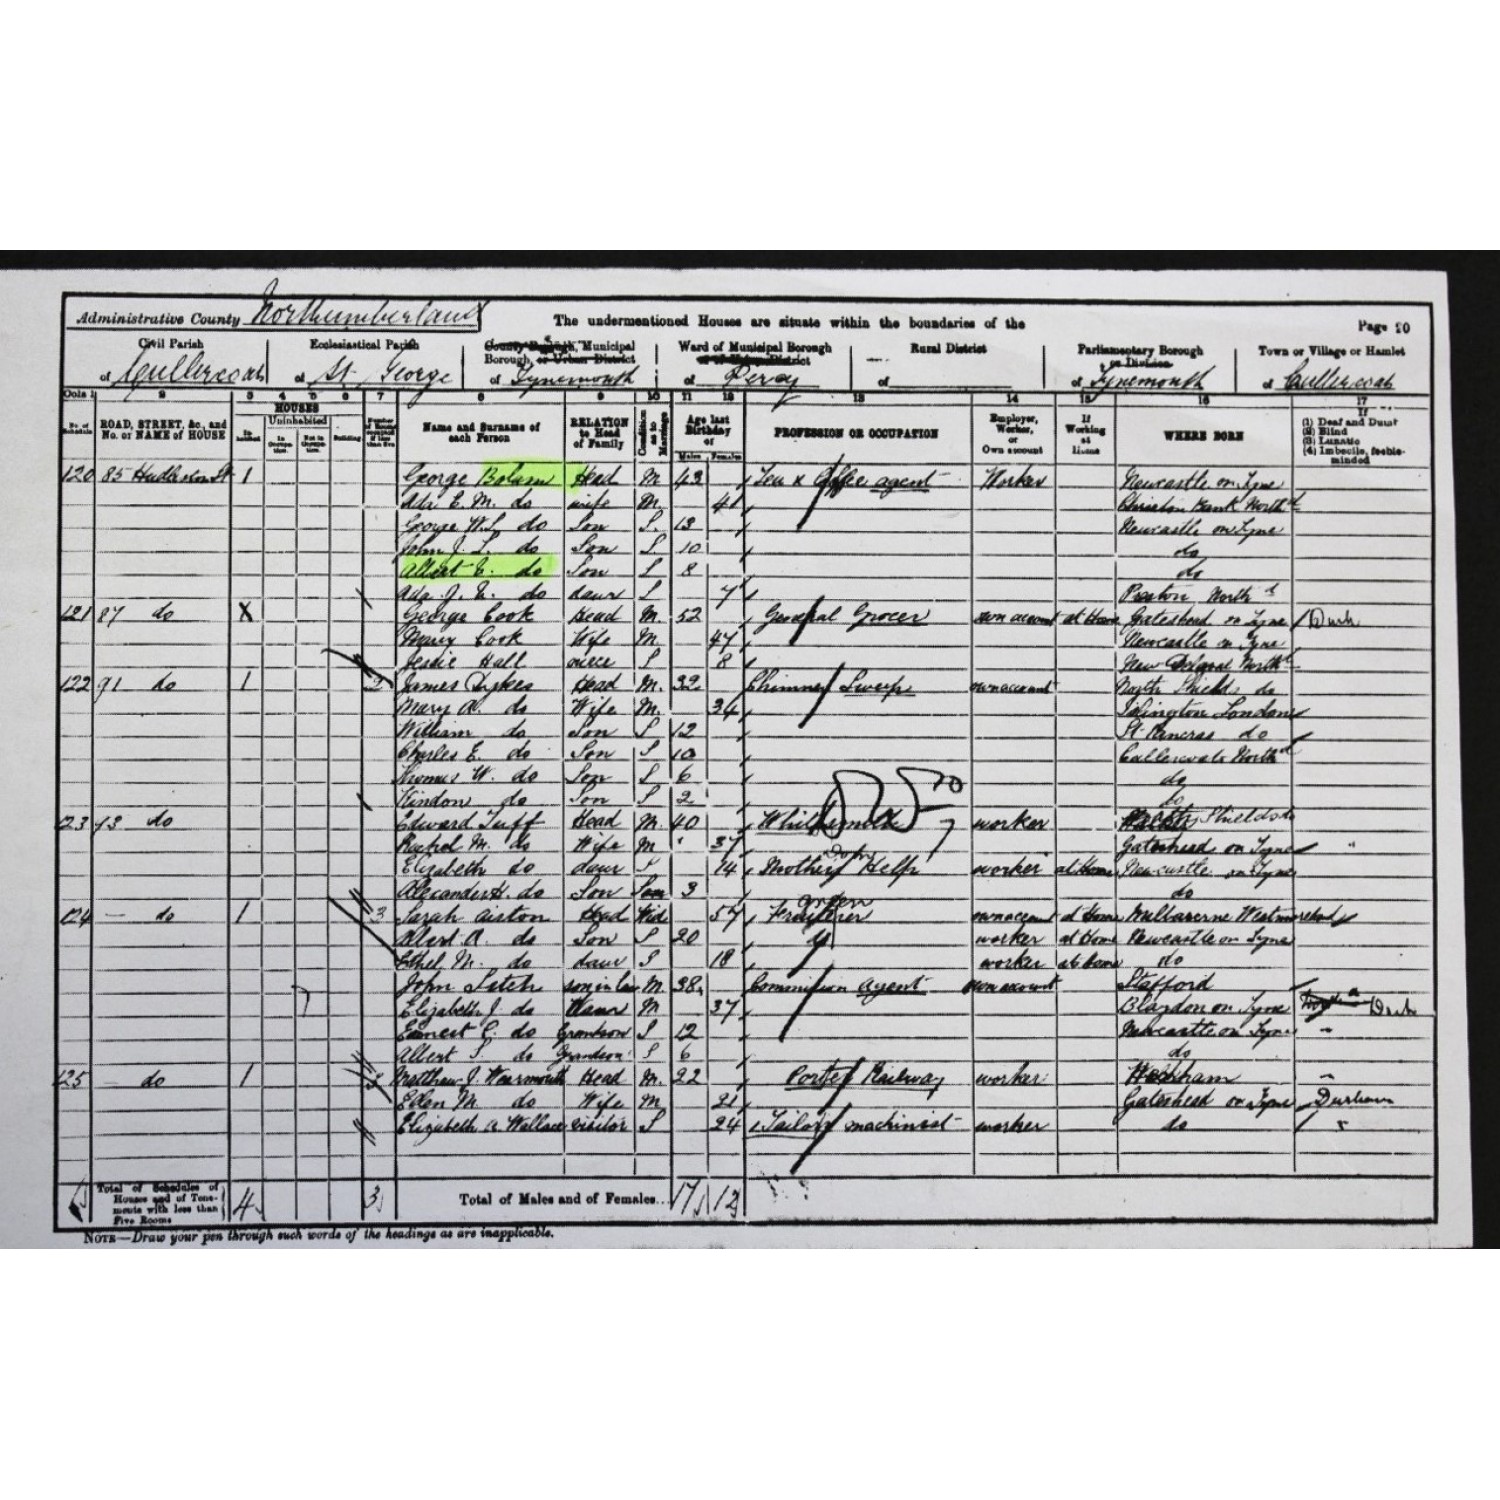 Administrative County Northumberland
The undermentioned Houses are situate within the boundaries of the
Page 20
Civil Parish of Cullercoats
Ecclesiastical Parish of St George
County Borough, Municipal Borough, or Urban District of Tynemouth
Ward of Municipal Borough or of Urban District of Percy
Rural District of
Parliamentary Borough or Division of Tynemouth
Town or Village or Hamlet of Cullercoats
Cols 1 2 3 4 5 6 7 8 9 10 11 12 13 14 15 16 17
No. of Schedule
ROAD, STREET, &c., and No. or NAME of HOUSE
HOUSES
Inhabited
Uninhabited
In Occupation.
Not in Occupation.
Building
Name and Surname of each Person
RELATION to Head of Family
Condition as to Marriage
Age last Birthday of
Males Females
PROFESSION OR OCCUPATION
Employer, Worker, or Own account
If Working at Home
WHERE BORN
If (1) Deaf and Dumb (2) Blind (3) Lunatic (4) Imbecile, feeble-minded
120 85 Hudleston St 1 George Bolam Head M 43 Tea x Coffee agent Worker Newcastle on Tyne
Ada E. M. do wife M. 41 Christon Bank North'd
George W.S. do Son S. 13 Newcastle on Tyne
John J. S. do Son S 10 do
Albert E. do Son S 8 do
Ada J. E. do daur S 7 Preston North'd
121 87 do X George Cook Head M. 52 General Grocer own account at Home Gateshead on Tyne Durh
Mary Cook Wife M. 47 Newcastle on Tyne
Jessie Hall niece S 8 New North'd
122 91 do 1 James Dykes Head M. 32 Chimney Sweep own account North Shields do
Mary A. do Wife M. 34 Islington London
William do Son S 12 St Pancras do
Charles E. do Son S 10 Cullercoats North'd
Thomas W. do Son S 6 do
Lindon do Son S 2 do
123 93 do Edward Tuff Head M. 40 Whitesmith worker Shields do
Rachel M. do Wife M 37 Gateshead on Tyne "
Elizabeth do daur S 14 Mothers Help Dom worker at Home Newcastle on Tyne
Alexander H. do Son 3 do
124 — do 1 3 Sarah Aiston Head Wid 57 Fruiterer own account at Home Westmorland
Albert A. do Son S 20 worker at Home Newcastle on Tyne
Ethel M. do daur S 18 worker at home do
John Sitch son in law M. 38 Commission Agent own account Stafford
Elizabeth J. do M 37 Blaydon on Tyne Durh
Ernest C. do Grandson S 12 Newcastle on Tyne
Albert S. do Grandson S 6 do
125 — do 1 Matthew J. Wearmouth Head M. 22 Porter Railway worker Hexham
Eden M. do Wife M 21 Gateshead on Tyne Durham
Elizabeth A. Wallace visitor S 24 Tailors machinist worker do
Total of Schedules of Houses and of Tenements with less than Five Rooms 4 3
Total of Males and of Females... 17 12
NOTE—Draw your pen through such words of the headings as are inapplicable.